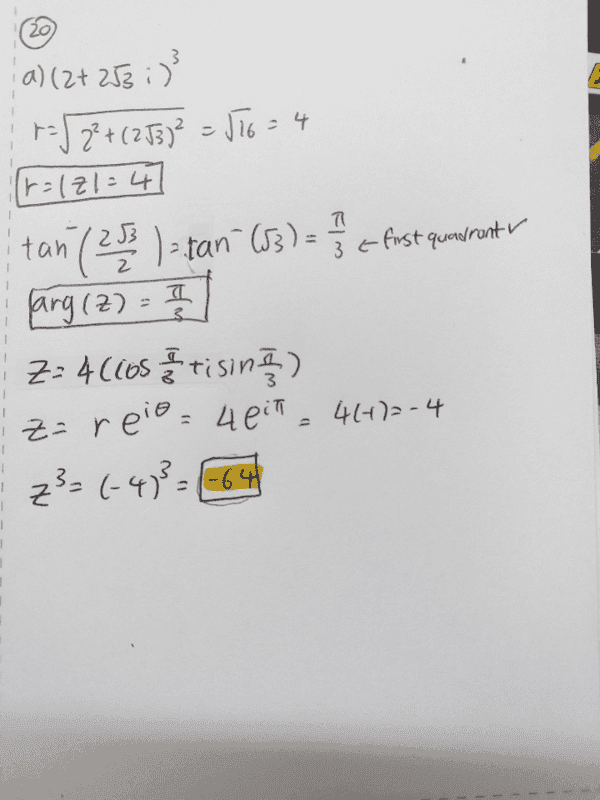 20
a) (2+ 2√3 i)³
r=√(2²+(2√3)²) = √16 = 4
r=|z|= 4
tan⁻(2√3/2)=tan⁻(√3)= π/3 ← first quadrant ✓
arg(z) = π/3
z= 4(cos π/3 +i sin π/3)
z= re^(iθ) = 4e^(iπ) = 4(-1)= -4
z³= (-4)³= -64